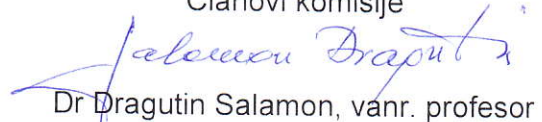 Članovi komisije
Salamon Dragutin
Dr Dragutin Salamon, vanr. profesor